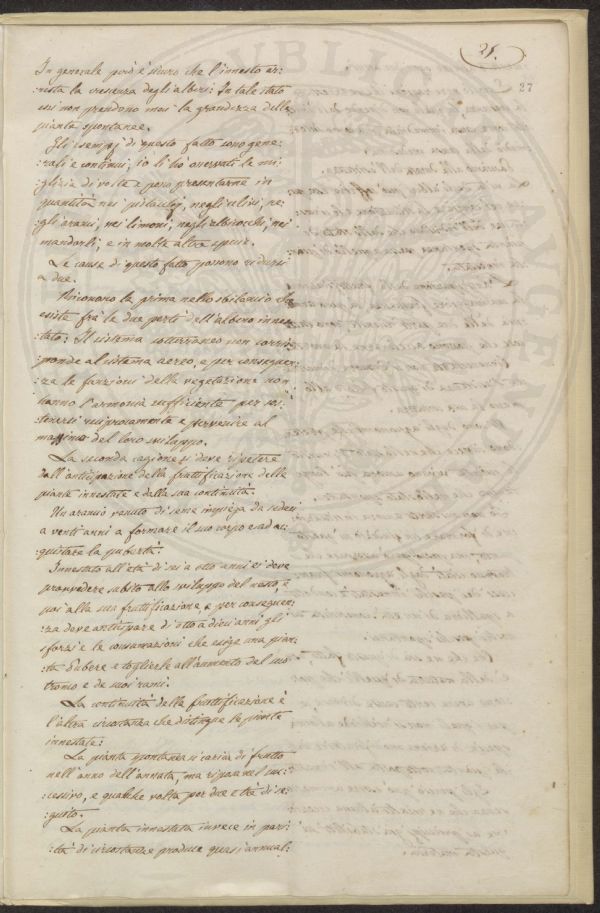 25.
27
In generale però è sicuro che l'innesto ar:
:resta la crescenza degli alberi: In tale stato
essi non prendono mai la grandezza delle
piante spontanee.
Gli esempj di questo fatto sono gene:
:rali e continui; io li hò osservati le mi:
:gliaia di volte e posso presentarne in
quantità nei pistacchj, negli ulivi, ne:
:gli aranci, nei limoni, negli albicocchi, nei
mandorli, e in molte altre specie.
Le cause di questo fatto possono ridursi
a due.
Riconosco la prima nello sbilancio che
esiste frà le due parti dell'albero innes:
:tato: Il sistema sotterraneo non corris:
:ponde al sistema aereo, e per conseguen:
:za le funzioni della vegetazione non
hanno l'armonia sufficiente per sos:
:tenersi reciprocamente e pervenire al
massimo del loro sviluppo.
La seconda cagione si deve ripetere
dall'anticipazione della fruttificazione delle
piante innestate e dalla sua continuità.
Un arancio venuto di seme impiega da sedeci
a venti anni a formare il suo corpo e ad ac:
:quistare la pubertà.
Innestato all'età di sei a otto anni ei deve
provvedere subito allo sviluppo del nesto, e
poi alla sua fruttificazione, e per conseguen:
:za deve anticipare di otto a dieci anni gli
sforzi e le consumazioni che esige una pian:
:ta Pubere e toglierle all'aumento del suo
tronco e de suoi rami.
La continuità della fruttificazione è
l'altra circostanza che distingue le piante
innestate:
La pianta spontanea si carica di frutto
nell'anno dell'annata, ma riposa nel suc:
:cessivo, e qualche volta per due e trè di se:
:guito.
La pianta innestata invece in pari:
:tà di circostanze produce quasi annual: